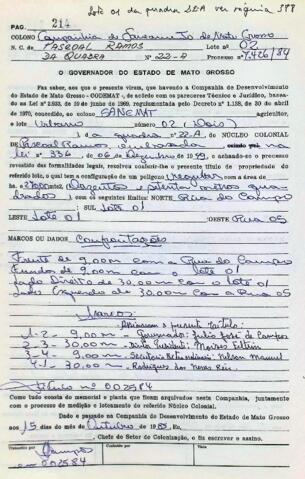 Lote 01 da quadra 22-A ver página 388
PAG. 214
COLONO Companhia de Saneam. to do Mato Grosso
N. C. de PASCOAL RAMOS Lote nº 02
DA QUADRA Nº 22-A Processo nº 7.426/84
O GOVERNADOR DO ESTADO DE MATO GROSSO
Faz saber, aos que a presente virem, que havendo a Companhia de Desenvolvimento
do Estado de Mato Grosso - CODEMAT -, de acordo com os pareceres Técnico e Jurídico, basea-
das as Lei nº 2.933, de 19 de junho de 1969, regulamentada pelo Decreto nº 1.138, de 30 de abril
de 1970, concedido, ao colono SANEMAT agricultor,
o lote Urbano número 02 (Dois)
da quadra nº 22-A. do NÚCLEO COLONIAL
de Pascoal Ramos, embasado
lei nº 336 de 06 de Dezembro de 1949, e achando-se o processo
revestido das formalidades legais, resolveu conceder-lhe o presente título de propriedade do
referido lote, o qual tem a configuração de um polígono irregular com a área de
270,00 (Duzentos e setenta metros qua-
drados) com os seguintes limites: NORTE Rua do Campo
SUL lote 01
LESTE lote 01 OESTE Rua 05
MARCOS OU DADOS Confrontações
Frente de 9,00m com a Rua do Campo
Fundos de 9,00m com o lote 01
Lado Direito de 30,00m com o lote 01
Lado Esquerdo de 30,00m com a Rua 05
Marcos
Assinaram o presente título:
1-2 - 9,00m - Governador: Julio José de Campos
2-3 - 30,00m - Moises Feltrin
3-4 - 9,00m - Nelson Manuel
4-1 - 30,00m - Rodrigues das Neves
Título nº 002584
Como tudo consta do memorial e planta que ficam arquivados nesta Companhia, juntamente
com o processo de medição e loteamento do referido Núcleo Colonial.
Dado e passado na Companhia de Desenvolvimento do Estado de Mato Grosso
aos 15 dias do mês de Outubro de 1985, Eu,
Chefe do Setor de Colonização, o fiz escrever e assino.
Transcrito por
em
002584